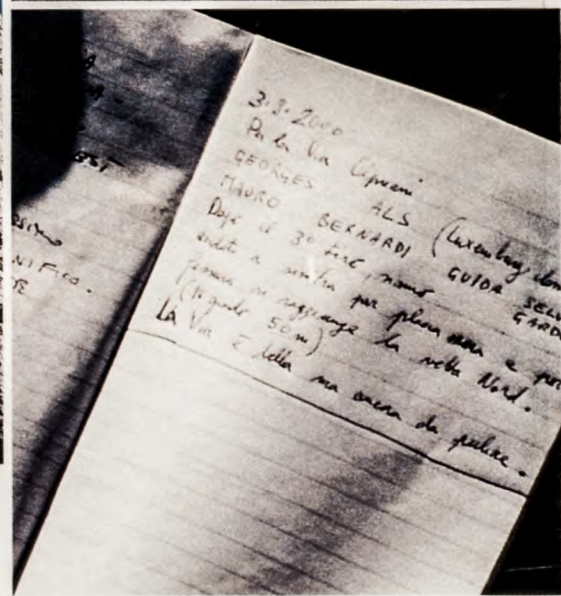 EST
NIFICO.
3.3.2000
Per la Via Cipriani
GEORGES ALS (Luxemburg,
MAURO BERNARDI GUIDA SELV
GARD
Dopo il 3º tiro, siamo
andati a sinistra per placca nera e poi
fessura si raggiunge la vetta Nord.
(III grado 50m)
La Via è bella ma ancora da pulire.